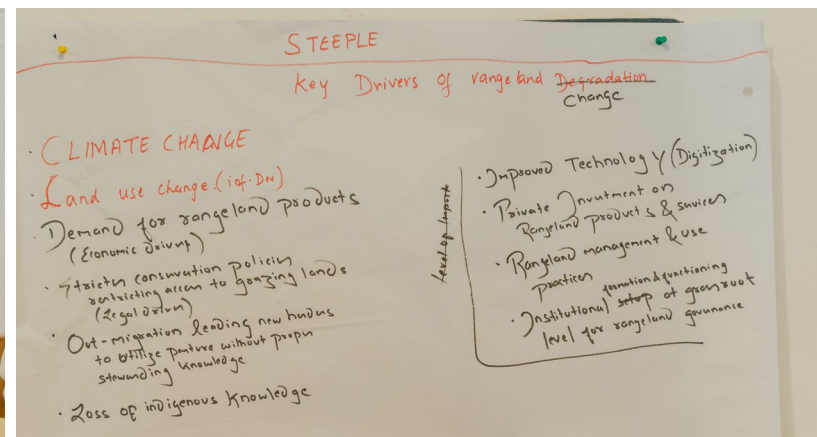 STEEPLE
Key Drivers of rangeland Degradation
Change
· CLIMATE CHANGE
· Land use change (inf. Dev)
· Demand for rangeland products
(Economic drivers)
· Stricter conservation policies
restricting access to grazing lands
(Legal driver)
· Out-migration leading new herders
to utilize pasture without proper
stewarding knowledge
· Loss of indigenous knowledge
Level of Import
· Improved Technology (Digitization)
· Private Investment on
Rangeland products & services
· Rangeland management & use
practices
formation & functioning
· Institutional setup at grassroot
level for rangeland governance